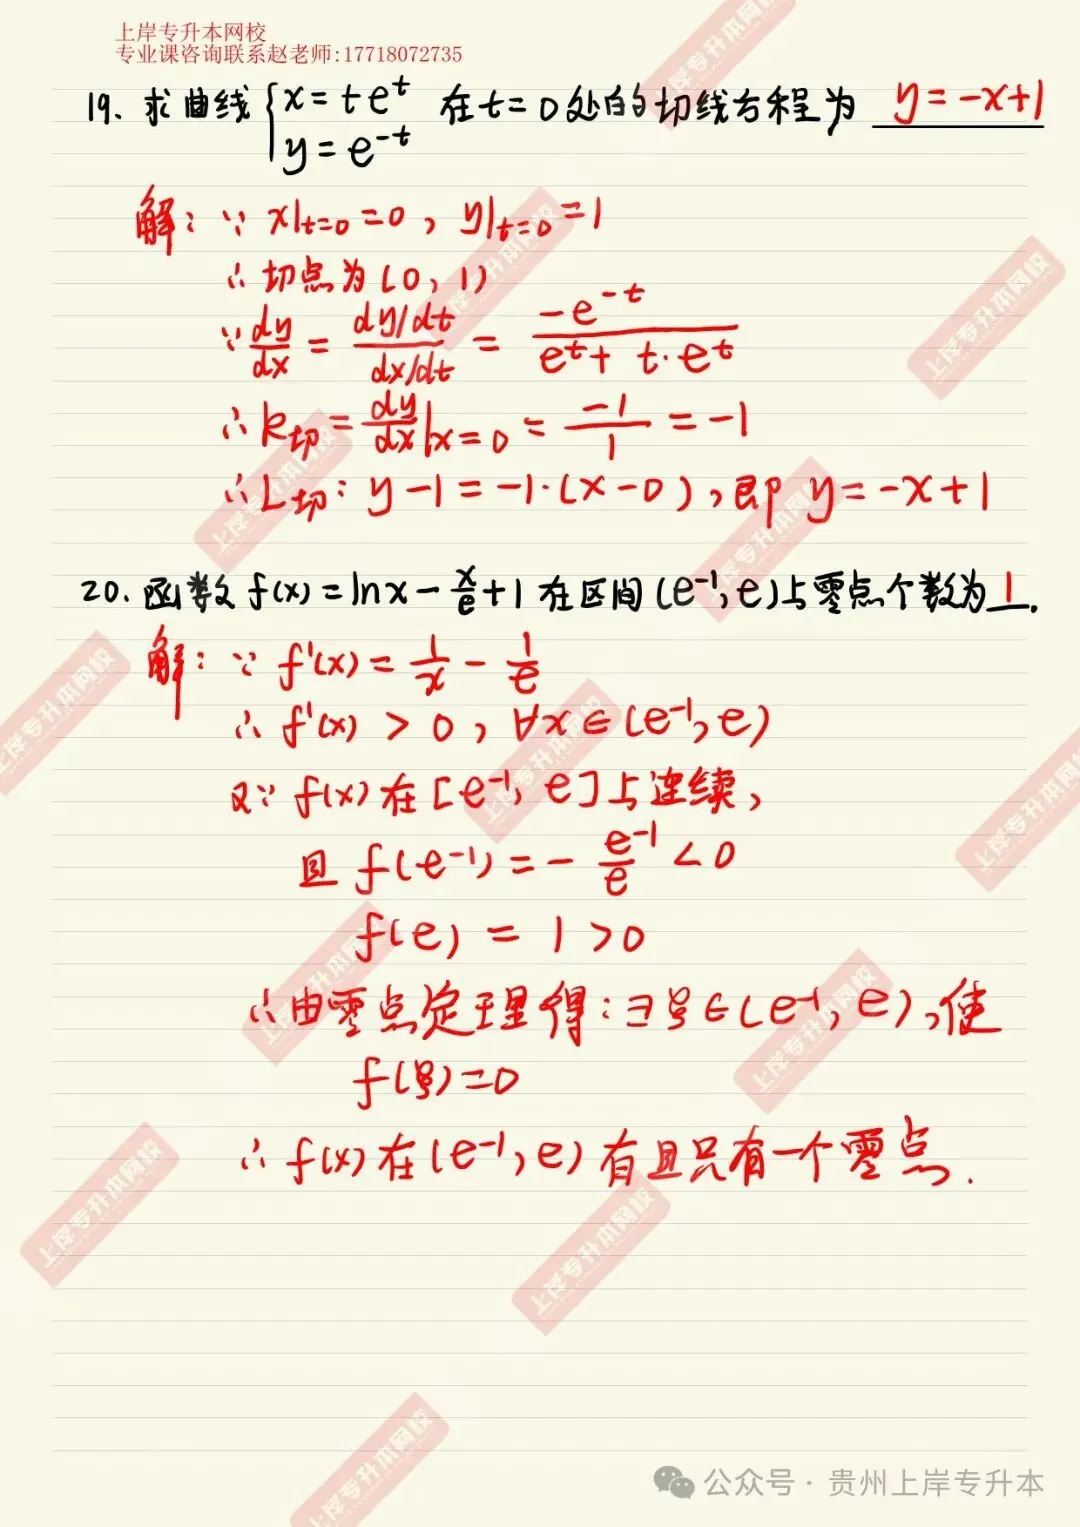 上岸专升本网校
专业课咨询联系赵老师:17718072735
19. 求曲线 { x = te^t 在 t=0 处的切线方程为 y=-x+1
y = e^{-t}
解: ∵ x|t=0 =0, y|t=0 =1
∴ 切点为 (0, 1)
∵ dy/dx = (dy/dt)/(dx/dt) = -e^{-t}/(e^t + t·e^t)
∴ k切 = dy/dx|x=0 = -1/1 = -1
∴ L切: y-1 = -1·(x-0), 即 y=-x+1
20. 函数 f(x) = lnx - x/e + 1 在区间 (e^{-1}, e) 上零点个数为 1.
解: ∵ f'(x) = 1/x - 1/e
∴ f'(x) > 0, ∀x∈(e^{-1}, e)
又∵ f(x) 在 [e^{-1}, e] 上连续,
且 f(e^{-1}) = - e^{-1}/e < 0
f(e) = 1 > 0
∴ 由零点定理得: ∃ξ∈(e^{-1}, e), 使
f(ξ)=0
∴ f(x) 在 (e^{-1}, e) 有且只有一个零点.
上岸专升本网校
公众号 · 贵州上岸专升本